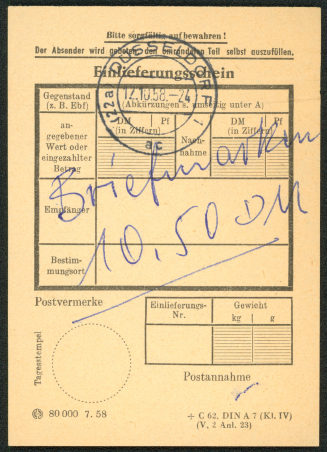 Bitte sorgfältig aufbewahren!
Der Absender wird gebeten, den umrandeten Teil selbst auszufüllen.
Einlieferungsschein
Gegenstand
(z. B. Ebf)
(Abkürzungen s. umseitig unter A)
(22a) DÜSSELDORF 1
12.10.58.-24
ac
an-
gegebener
Wert oder
eingezahlter
Betrag
DM
Pf
(in Ziffern)
Nach-
nahme
DM
Pf
(in Ziffern)
Briefmarken
Empfänger
10,50 DM
Bestim-
mungsort
Postvermerke
Einlieferungs-
Nr.
Gewicht
kg
g
Tagesstempel
Postannahme
80 000 7. 58
÷ C 62, DIN A 7 (Kl. IV)
(V, 2 Anl. 23)